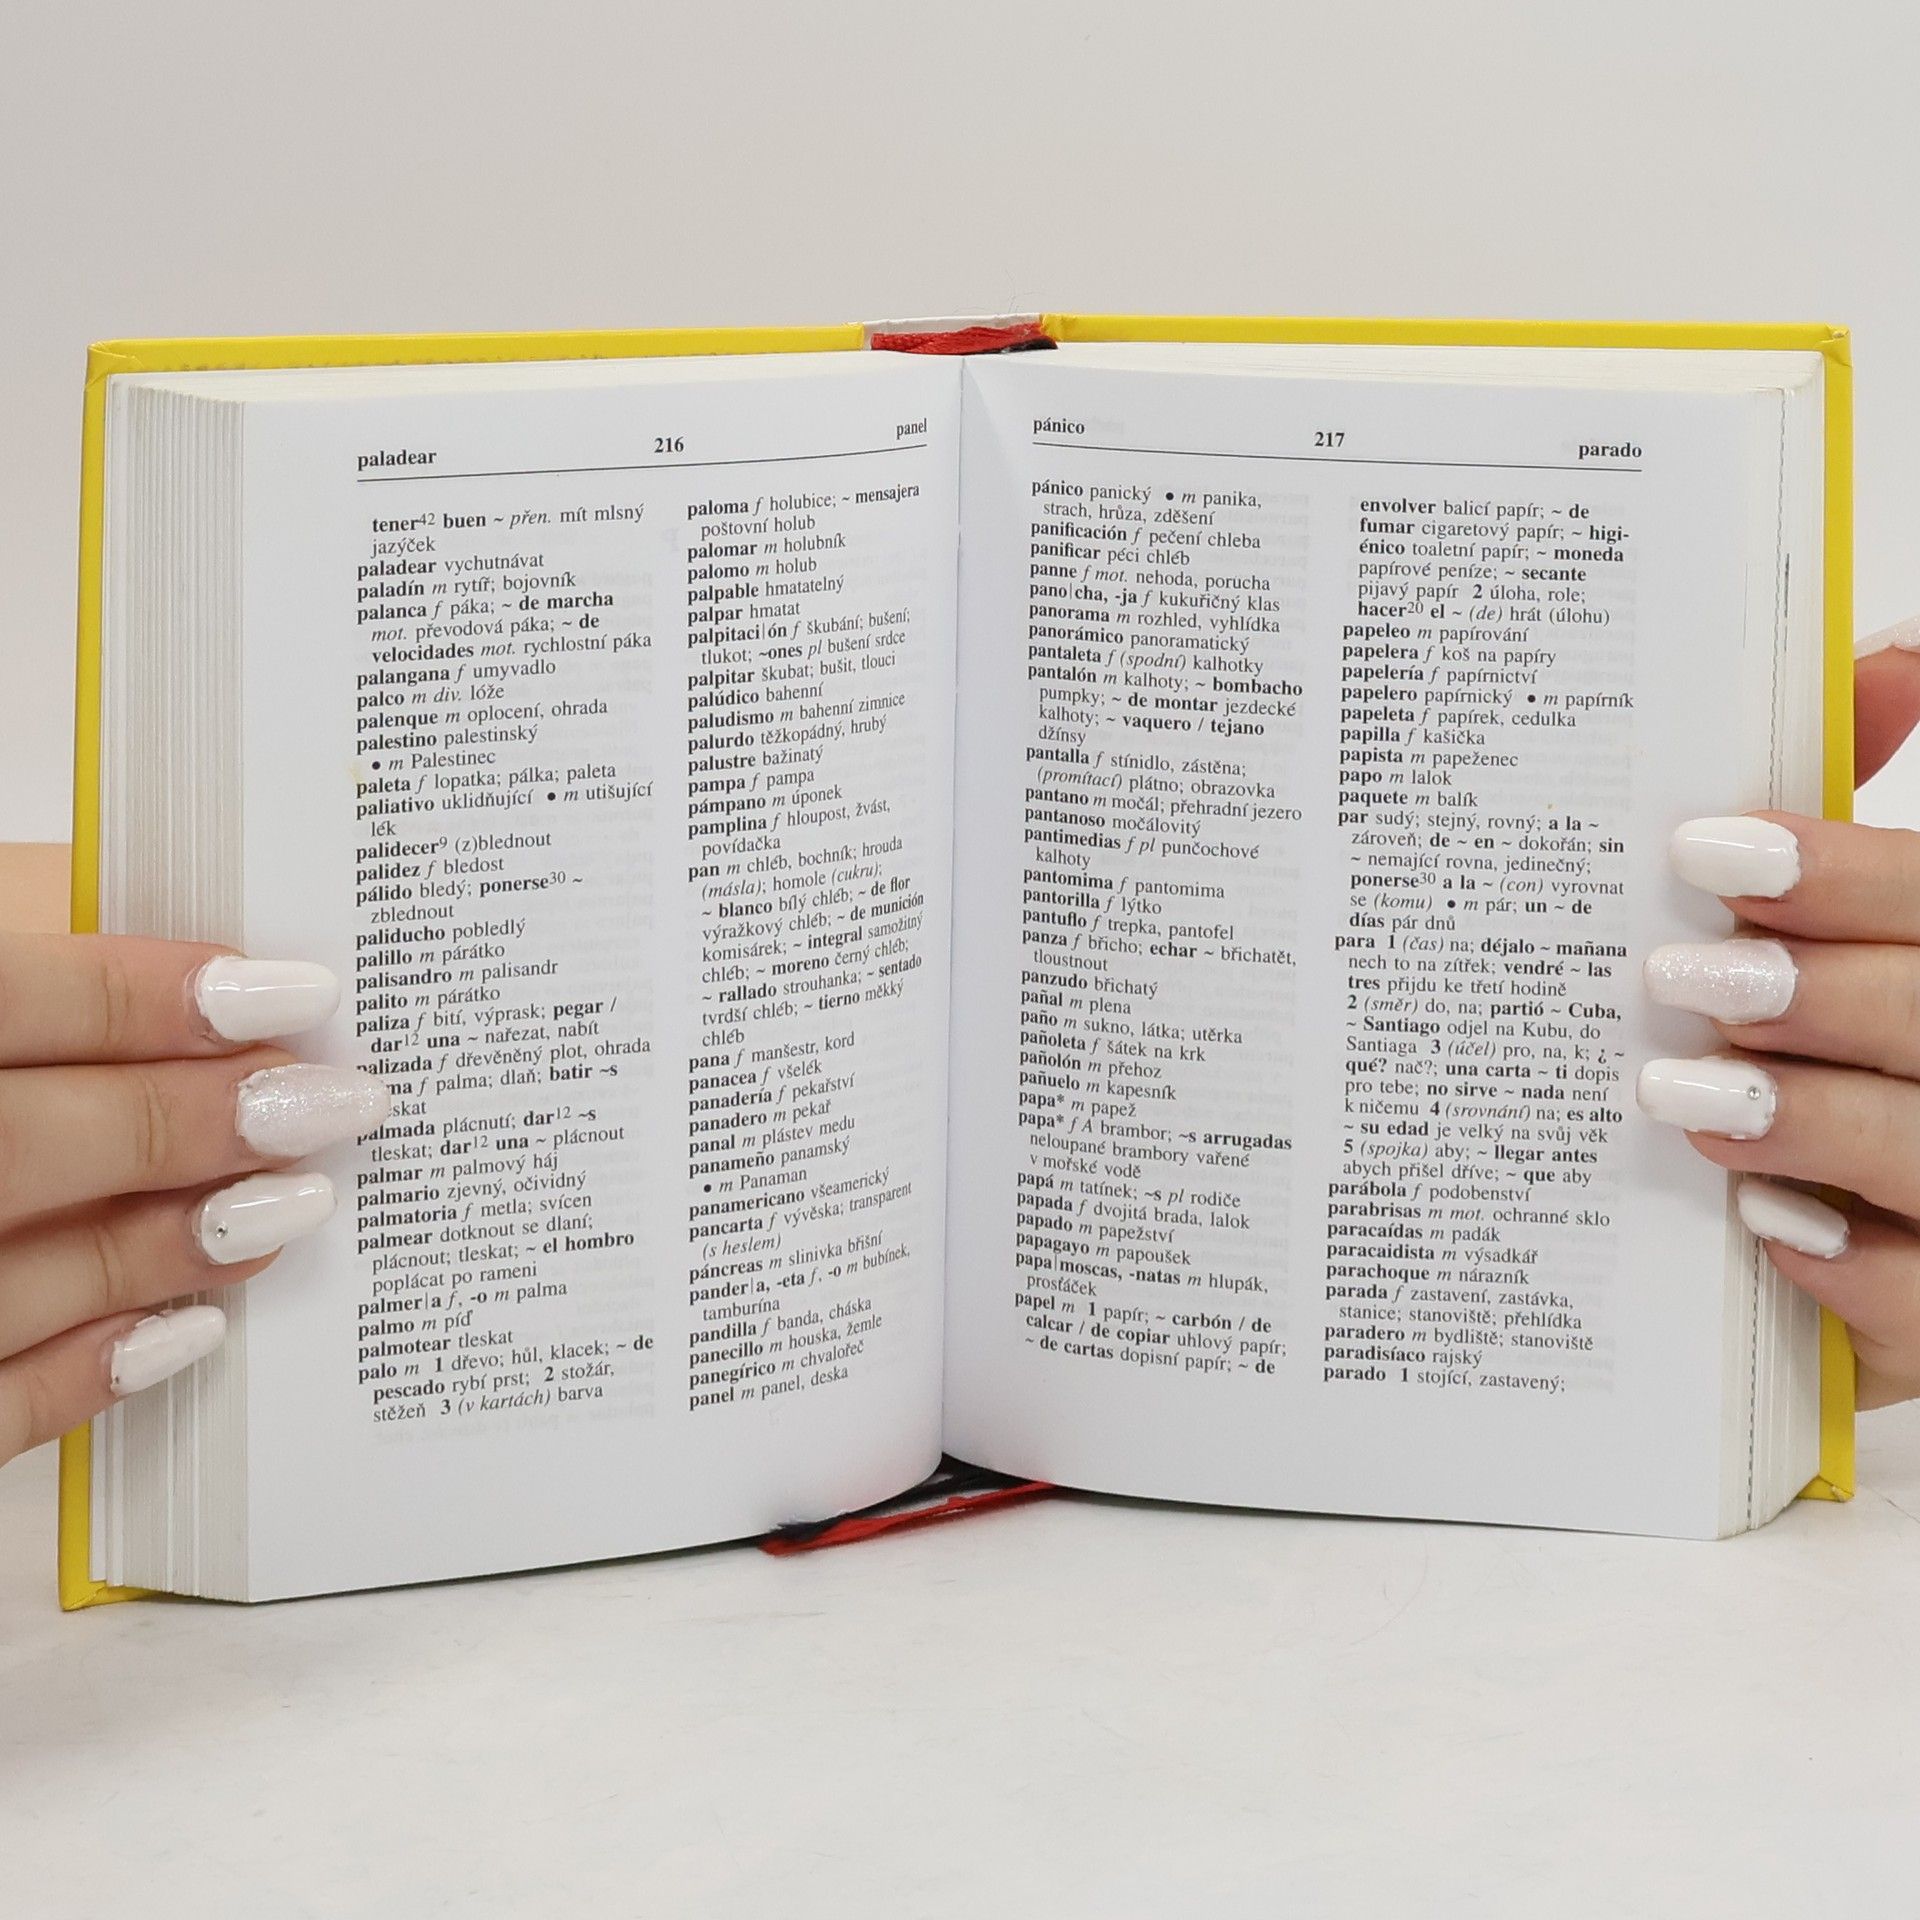 paladear 216 panel
tener42 buen ~ přen. mít mlsný
jazýček
paladear vychutnávat
paladín m rytíř; bojovník
palanca f páka; ~ de marcha
mot. převodová páka; ~ de
velocidades mot. rychlostní páka
palangana f umyvadlo
palco m div. lóže
palenque m oplocení, ohrada
palestino palestinský
● m Palestinec
paleta f lopatka; pálka; paleta
paliativo uklidňující ● m utišující
lék
palidecer9 (z)blednout
palidez f bledost
pálido bledý; ponerse30 ~
zblednout
paliducho pobledlý
palillo m párátko
palisandro m palisandr
palito m párátko
paliza f bití, výprask; pegar /
dar12 una ~ nařezat, nabít
palizada f dřevěněný plot, ohrada
ma f palma; dlaň; batir ~s
eskat
palmada plácnutí; dar12 ~s
tleskat; dar12 una ~ plácnout
palmar m palmový háj
palmario zjevný, očividný
palmatoria f metla; svícen
palmear dotknout se dlaní;
plácnout; tleskat; ~ el hombro
poplácat po rameni
palmer|a f, -o m palma
palmo m píď
palmotear tleskat
palo m 1 dřevo; hůl, klacek; ~ de
pescado rybí prst; 2 stožár,
stěžeň 3 (v kartách) barva
paloma f holubice; ~ mensajera
poštovní holub
palomar m holubník
palomo m holub
palpable hmatatelný
palpar hmatat
palpitaci|ón f škubání; bušení;
tlukot; ~ones pl bušení srdce
palpitar škubat; bušit, tlouci
palúdico bahenní
paludismo m bahenní zimnice
palurdo těžkopádný, hrubý
palustre bažinatý
pampa f pampa
pámpano m úponek
pamplina f hloupost, žvást,
povídačka
pan m chléb, bochník; hrouda
(másla); homole (cukru);
~ blanco bílý chléb; ~ de flor
výražkový chléb; ~ de munición
komisárek; ~ integral samožitný
chléb; ~ moreno černý chléb;
~ rallado strouhanka; ~ sentado
tvrdší chléb; ~ tierno měkký
chléb
pana f manšestr, kord
panacea f všelék
panadería f pekařství
panadero m pekař
panal m plástev medu
panameño panamský
● m Panaman
panamericano všeamerický
pancarta f vývěska; transparent
(s heslem)
páncreas m slinivka břišní
pander|a, -eta f, -o m bubínek,
tamburína
pandilla f banda, cháska
panecillo m houska, žemle
panegírico m chvalořeč
panel m panel, deska
pánico 217 parado
pánico panický ● m panika,
strach, hrůza, zděšení
panificación f pečení chleba
panificar péci chléb
panne f mot. nehoda, porucha
pano|cha, -ja f kukuřičný klas
panorama m rozhled, vyhlídka
panorámico panoramatický
pantaleta f (spodní) kalhotky
pantalón m kalhoty; ~ bombacho
pumpky; ~ de montar jezdecké
kalhoty; ~ vaquero / tejano
džínsy
pantalla f stínidlo, zástěna;
(promítací) plátno; obrazovka
pantano m močál; přehradní jezero
pantanoso močálovitý
pantimedias f pl punčochové
kalhoty
pantomima f pantomima
pantorilla f lýtko
pantuflo f trepka, pantofel
panza f břicho; echar ~ břichatět,
tloustnout
panzudo břichatý
pañal m plena
paño m sukno, látka; utěrka
pañoleta f šátek na krk
pañolón m přehoz
pañuelo m kapesník
papa* m papež
papa* f A brambor; ~s arrugadas
neloupané brambory vařené
v mořské vodě
papá m tatínek; ~s pl rodiče
papada f dvojitá brada, lalok
papado m papežství
papagayo m papoušek
papa|moscas, -natas m hlupák,
prosťáček
papel m 1 papír; ~ carbón / de
calcar / de copiar uhlový papír;
~ de cartas dopisní papír; ~ de
envolver balicí papír; ~ de
fumar cigaretový papír; ~ higi-
énico toaletní papír; ~ moneda
papírové peníze; ~ secante
pijavý papír 2 úloha, role;
hacer20 el ~ (de) hrát (úlohu)
papeleo m papírování
papelera f koš na papíry
papelería f papírnictví
papelero papírnický ● m papírník
papeleta f papírek, cedulka
papilla f kašička
papista m papeženec
papo m lalok
paquete m balík
par sudý; stejný, rovný; a la ~
zároveň; de ~ en ~ dokořán; sin
~ nemající rovna, jedinečný;
ponerse30 a la ~ (con) vyrovnat
se (komu) ● m pár; un ~ de
días pár dnů
para 1 (čas) na; déjalo ~ mañana
nech to na zítřek; vendré ~ las
tres přijdu ke třetí hodině
2 (směr) do, na; partió ~ Cuba,
~ Santiago odjel na Kubu, do
Santiaga 3 (účel) pro, na, k; ¿ ~
qué? nač?; una carta ~ ti dopis
pro tebe; no sirve ~ nada není
k ničemu 4 (srovnání) na; es alto
~ su edad je velký na svůj věk
5 (spojka) aby; ~ llegar antes
abych přišel dříve; ~ que aby
parábola f podobenství
parabrisas m mot. ochranné sklo
paracaídas m padák
paracaidista m výsadkář
parachoque m nárazník
parada f zastavení, zastávka,
stanice; stanoviště; přehlídka
paradero m bydliště; stanoviště
paradisíaco rajský
parado 1 stojící, zastavený;